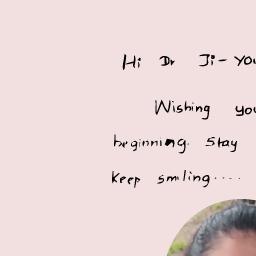 Hi Dr Ji - You
Wishing you
beginning. Stay
keep smiling....